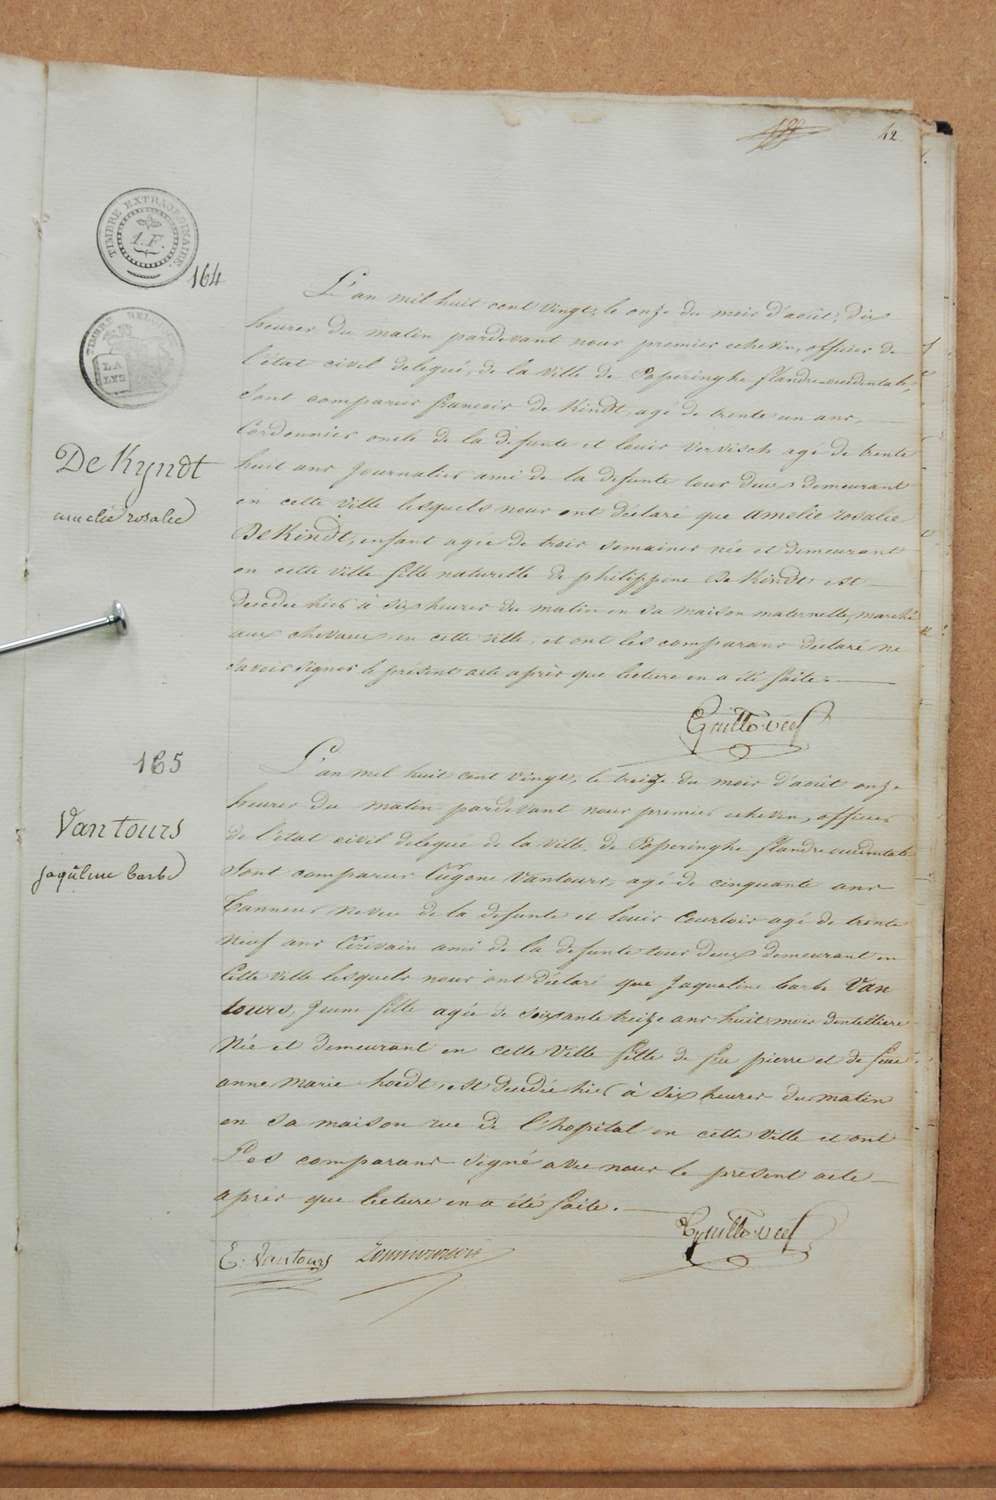 42
TIMBRE EXTRAORDINAIRE.
1. F.
164
L'an mil huit cent vingt, le onze du mois d'août, dix
heures du matin pardevant nous premier echevin, officier de
l'état civil delegué, de la ville de Poperinghe flandre occidentale,
sont comparus françois de Kindt, agé de trente un ans,
Cordonnier oncle de la defunte et louis Vervisch agé de trente
huit ans journalier ami de la defunte tous deux demeurant
en cette ville lesquels nous ont déclaré que amelie rosalie
DeKindt, enfant agée de trois semaines née et demeurant
en cette ville fille naturelle de philippine DeKindt est
decedée hier à six heures du matin en sa maison maternelle, marché
aux chevaux en cette ville, et ont les comparans declaré ne
savoir signer le présent acte après que lecture en a été faite.
TIMBRE BELGIQUE
LA
LYS
De Kyndt
amelie rosalie
165
L'an mil huit cent vingt, le treize du mois d'août onze
heures du matin pardevant nous premier echevin, officier
de l'état civil delegué de la ville de Poperinghe flandre occidentale
sont comparus Eugene Vantours, agé de cinquante ans
Tanneur neveu de la defunte et louis Courtois agé de trente
neuf ans Ecrivain ami de la defunte tous deux demeurant en
cette ville lesquels nous ont déclaré que Jaqueline barbe Van
tours, jeune fille agée de soixante treize ans huit mois dentelliere
née et demeurant en cette Ville fille de feu pierre et de feue
anne marie hoedt, est decedée hier à six heures du matin
en sa maison rue de l'hopital en cette ville et ont
Les comparans signé avec nous le present acte
après que lecture en a été faite.
Vantours
jaqueline barbe
E. Vantours